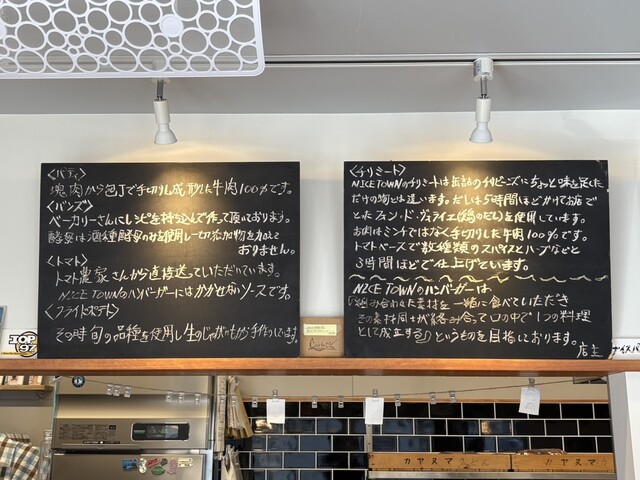 〈パティ〉
塊肉から包丁で手切りし成形した牛肉100%です。
〈バンズ〉
ベーカリーさんにレシピを持ち込んで作って頂いております。
酵素は酒種酵素のみを使用し一切添加物を加えて
おりません。
〈トマト〉
トマト農家さんから直接送っていただいています。
NICE TOWNのハンバーガーにはかかせないソースです。
〈フライドポテト〉
その時旬の品種を使用し生のじゃがいもから手作りしています。
〈チリミート〉
NICE TOWNのチリミートは缶詰のチリビーンズにちょっと味を足した
だけの物とは違います。だしは5時間ほどかけてお店で
とったフォン・ド・ヴォライユ(鶏のだし)を使用しています。
お肉はミンチではなく手切りした牛肉100%です。
トマトベースで数種類のスパイスとハーブなどと
3時間ほどで仕上げています。
NICE TOWNのハンバーガーは
組み合わせた素材を一緒に食べていただき
その素材同士が絡み合って口の中で1つの料理
として成立する。というものを目指しております。
店主
TOP
97
ナイスバ
カヤヌマ
カヤヌマ